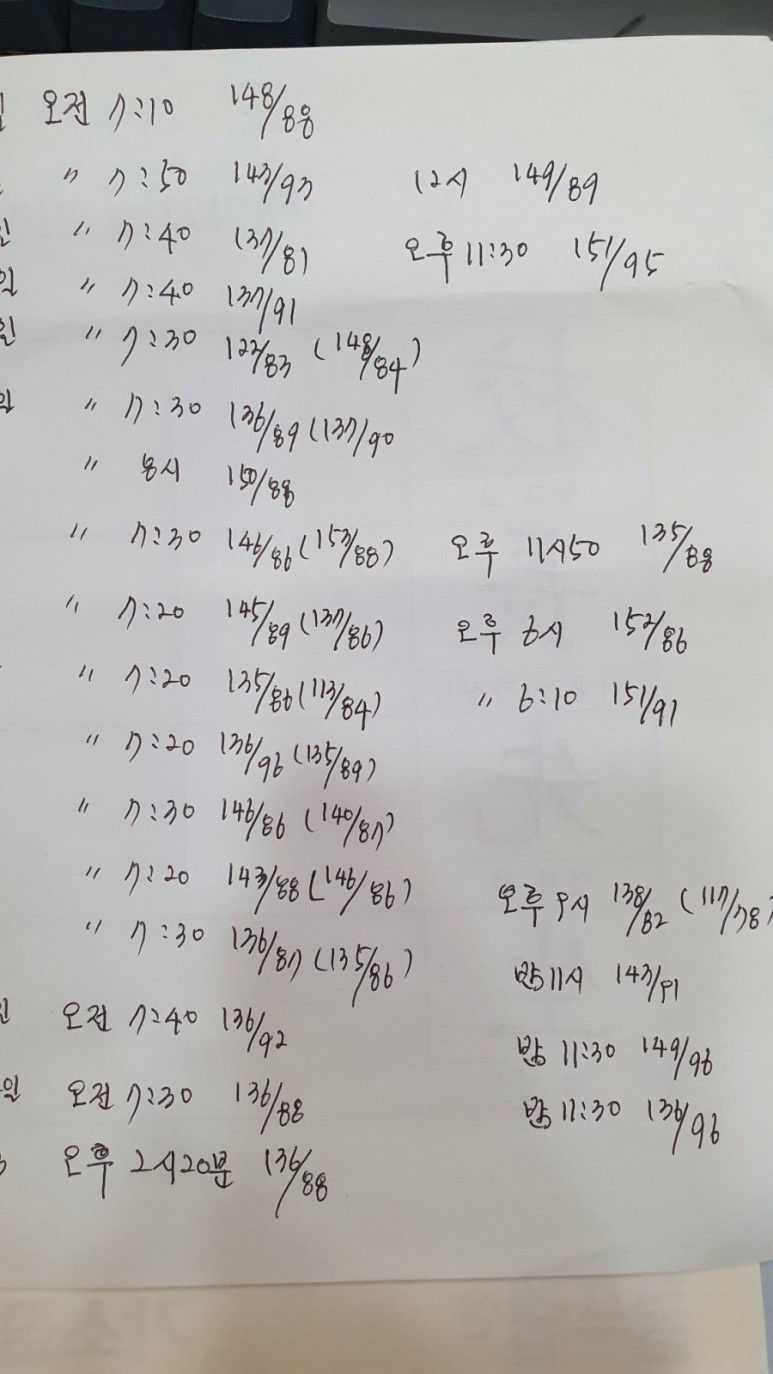 오전 7:10 148/88
" 7:50 143/93 12시 149/89
일 " 7:40 137/81 오후 11:30 151/95
일 " 7:40 137/91
일 " 7:30 122/83 (148/84)
일 " 7:30 136/89 (137/90
" 8시 150/88
" 7:30 146/86 (153/88) 오후 11시50 135/88
" 7:20 145/89 (137/86) 오후 6시 152/86
" 7:20 135/86 (113/84) " 6:10 151/91
" 7:20 136/96 (135/89)
" 7:30 146/86 (140/87)
" 7:20 143/88 (146/86) 오후 9시 138/82 (117/78)
" 7:30 136/87 (135/86) 밤 11시 143/91
오전 7:40 136/92 밤 11:30 149/96
일 오전 7:30 136/88 밤 11:30 136/96
오후 2시20분 136/88